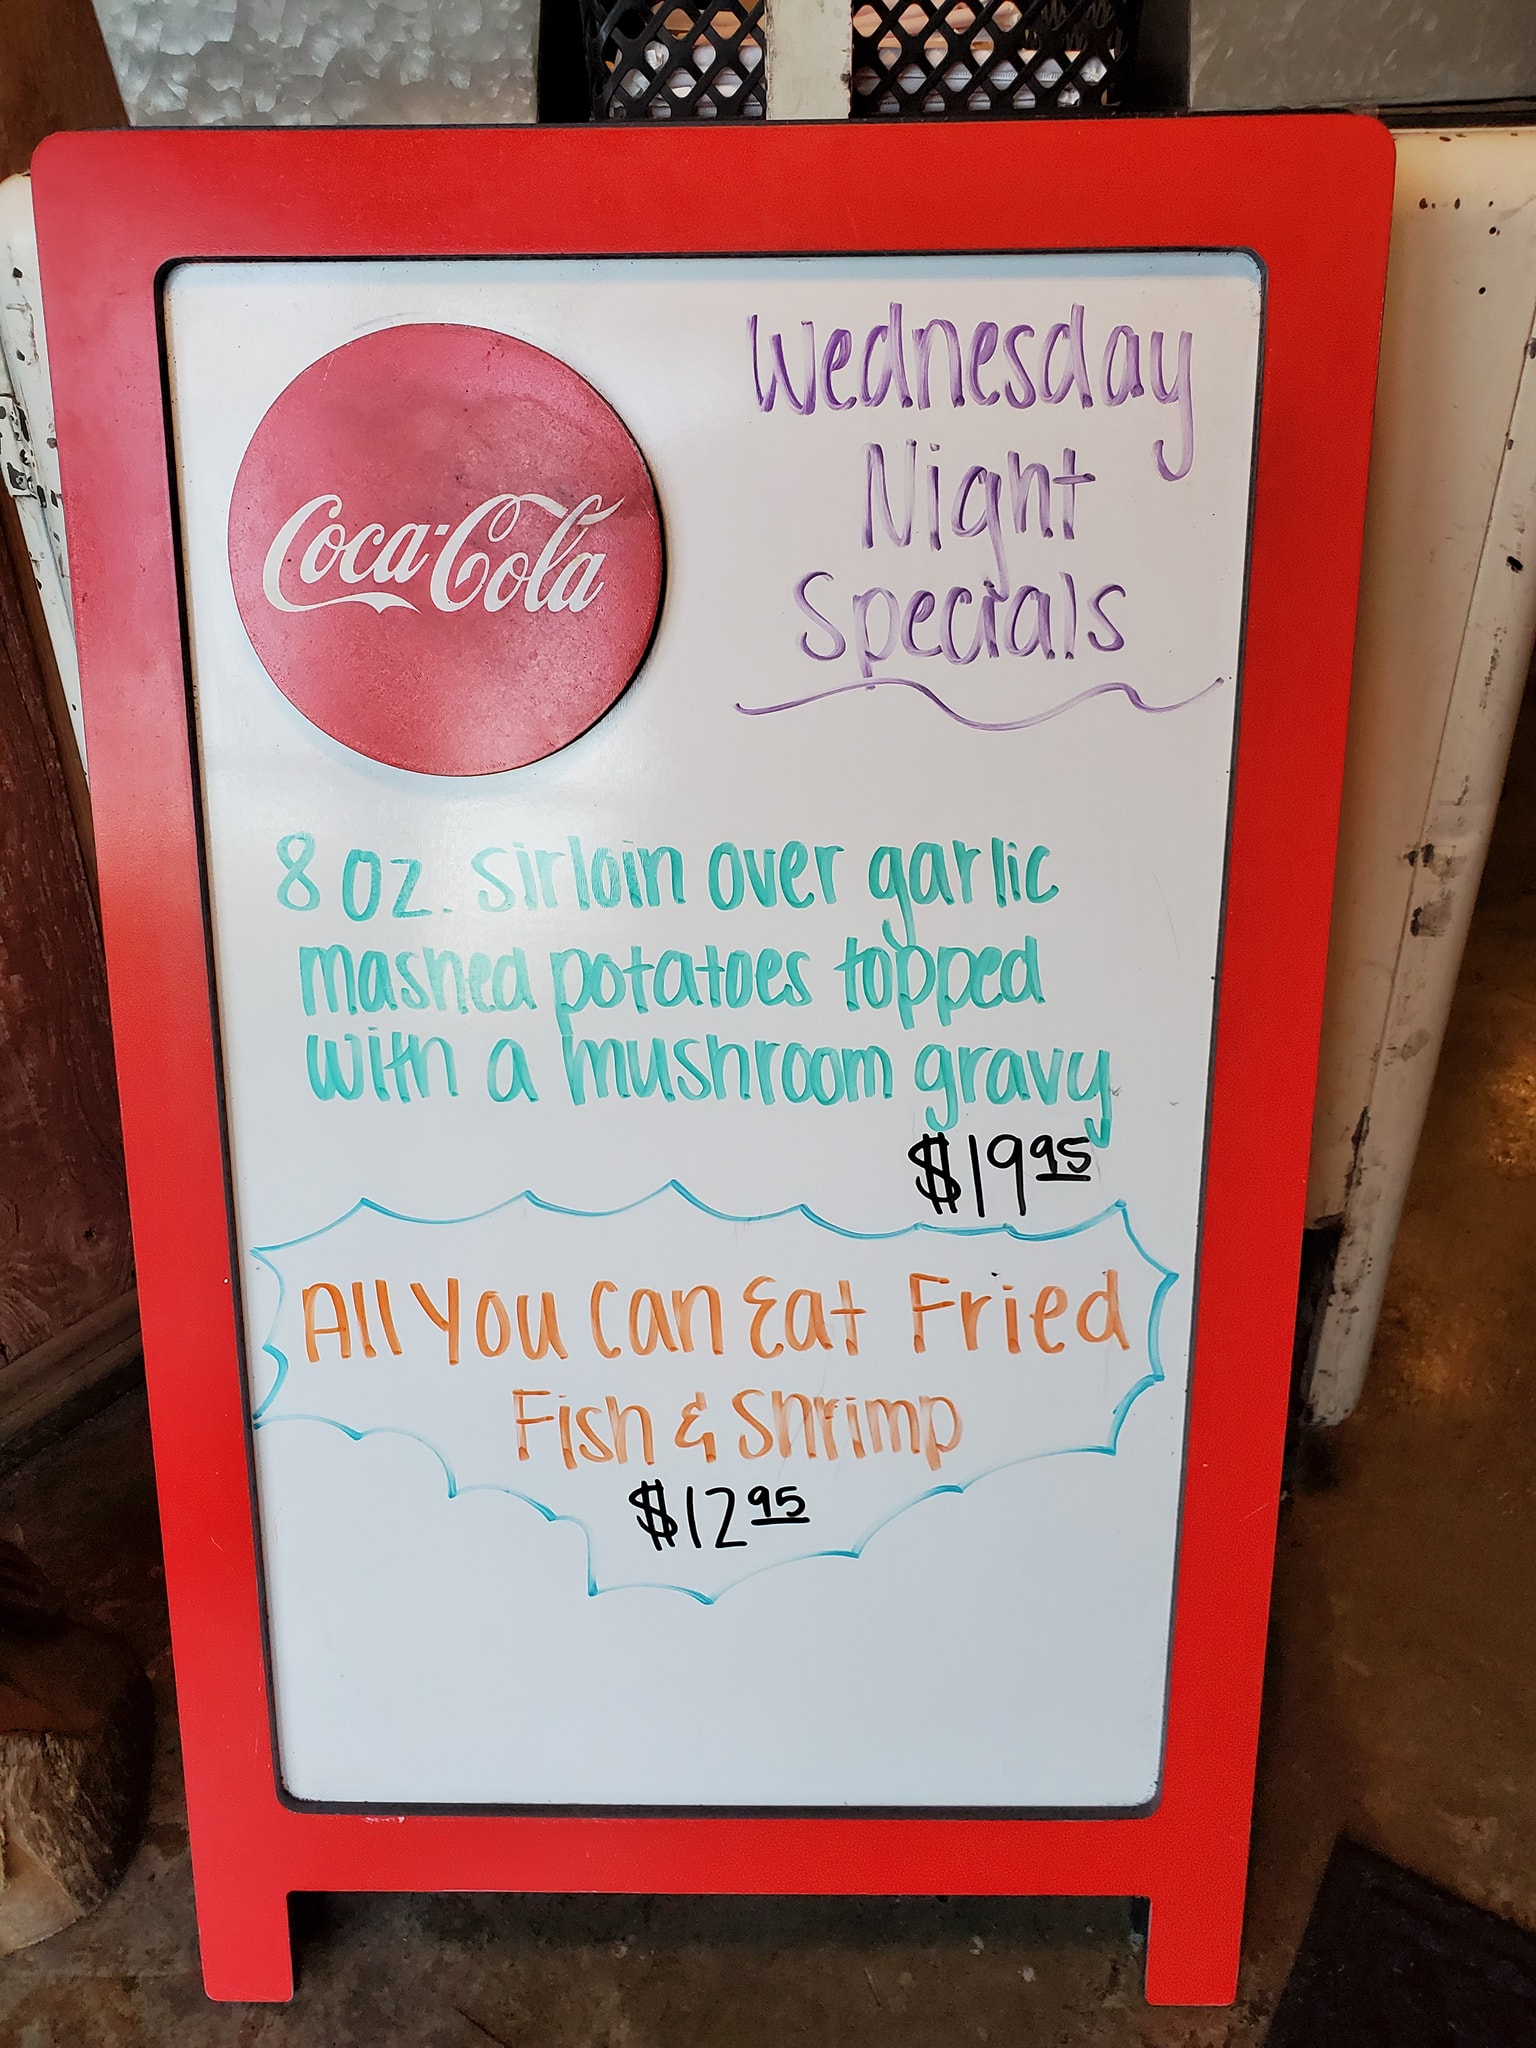 Coca-Cola
Wednesday
Night
Specials
8 oz. sirloin over garlic
mashed potatoes topped
with a mushroom gravy
$19 95
All You Can Eat Fried
Fish & Shrimp
$12 95